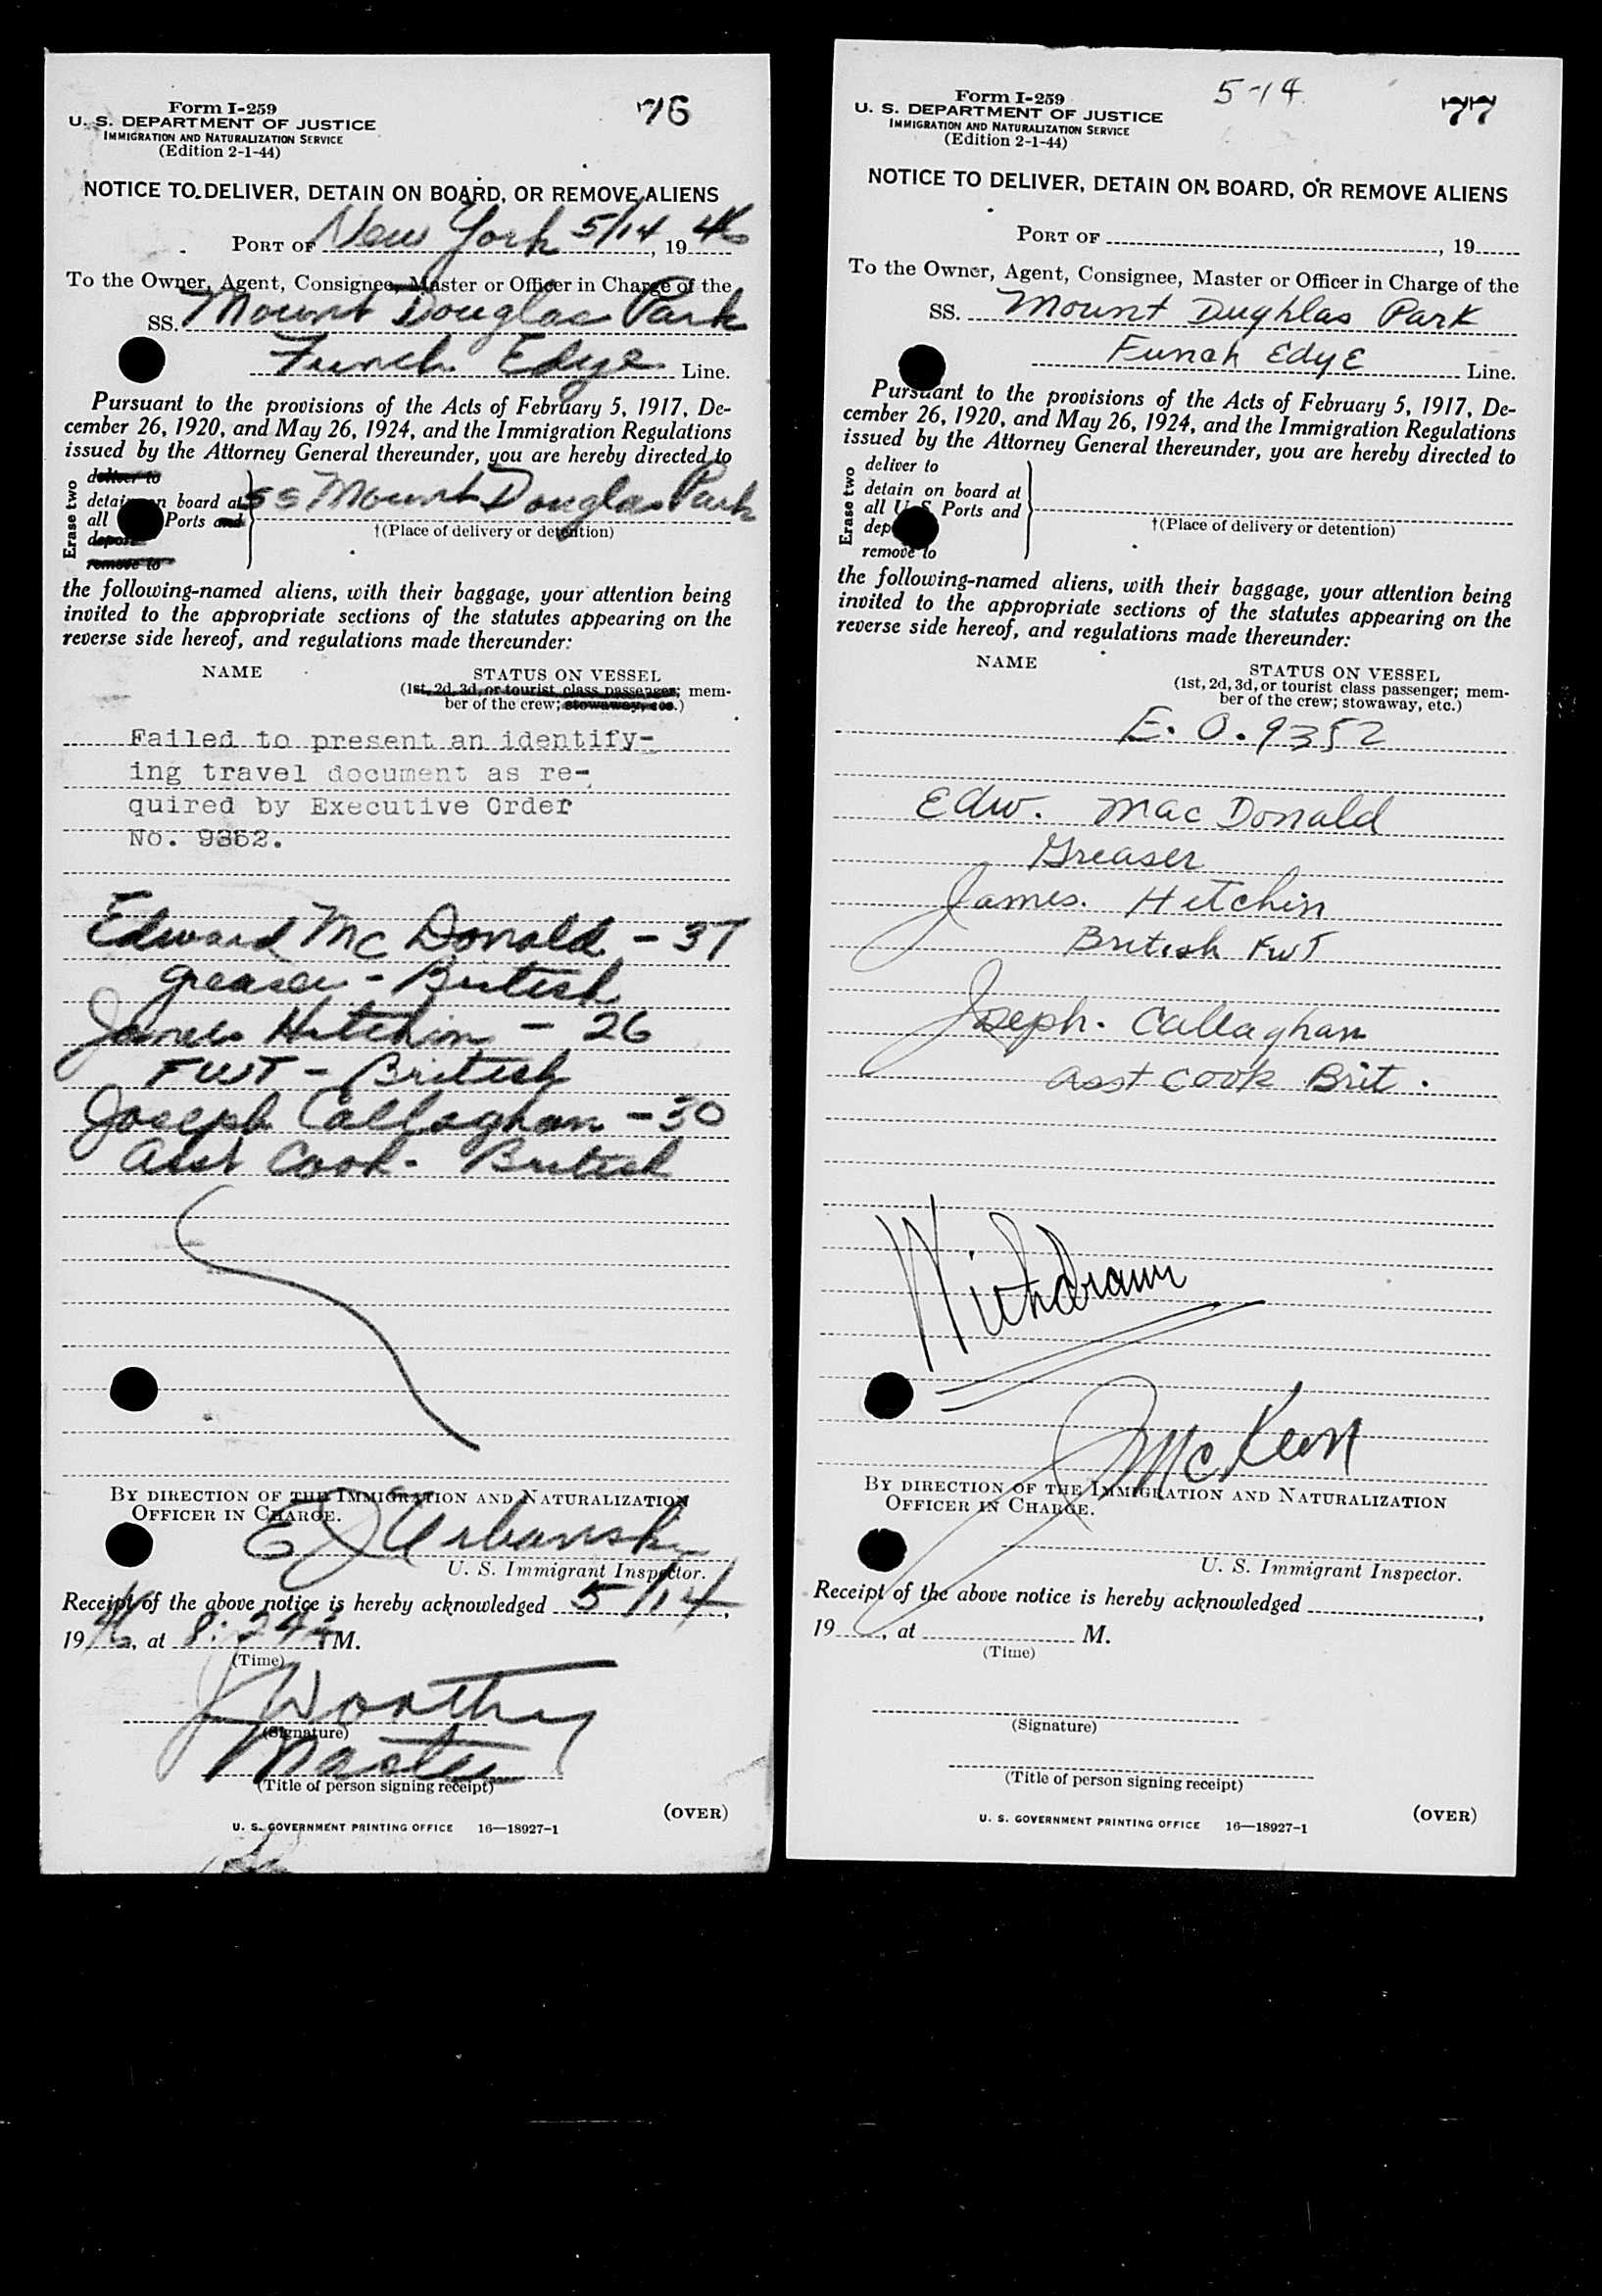 Form I-259
U. S. DEPARTMENT OF JUSTICE
IMMIGRATION AND NATURALIZATION SERVICE
(Edition 2-1-44)
76
NOTICE TO DELIVER, DETAIN ON BOARD, OR REMOVE ALIENS
PORT OF New York 5/14, 1946
To the Owner, Agent, Consignee, Master or Officer in Charge of the
SS. Mount Douglas Park
Funch Edye Line.
Pursuant to the provisions of the Acts of February 5, 1917, De-
cember 26, 1920, and May 26, 1924, and the Immigration Regulations
issued by the Attorney General thereunder, you are hereby directed to
Erase two
deliver to
detain on board at SS Mount Douglas Park
all Ports and
deport
remove to
†(Place of delivery or detention)
the following-named aliens, with their baggage, your attention being
invited to the appropriate sections of the statutes appearing on the
reverse side hereof, and regulations made thereunder:
NAME STATUS ON VESSEL
(1st, 2d, 3d, or tourist class passenger; mem-
ber of the crew; stowaway, etc.)
Failed to present an identify-
ing travel document as re-
quired by Executive Order
No. 9352.
Edward McDonald - 37
greaser - British
James Hutchin - 26
FWT - British
Joseph Callaghan - 30
Asst Cook - British
BY DIRECTION OF THE IMMIGRATION AND NATURALIZATION
OFFICER IN CHARGE.
E J Urbanski
U. S. Immigrant Inspector.
Receipt of the above notice is hereby acknowledged 5/14,
1946, at 8:24 M.
(Time)
J Worthy
(Signature)
Master
(Title of person signing receipt)
(OVER)
U. S. GOVERNMENT PRINTING OFFICE 16—18927-1
Form I-259
U. S. DEPARTMENT OF JUSTICE
IMMIGRATION AND NATURALIZATION SERVICE
(Edition 2-1-44)
5-14
77
NOTICE TO DELIVER, DETAIN ON BOARD, OR REMOVE ALIENS
PORT OF , 19
To the Owner, Agent, Consignee, Master or Officer in Charge of the
SS. Mount Dughlas Park
Funch Edye Line.
Pursuant to the provisions of the Acts of February 5, 1917, De-
cember 26, 1920, and May 26, 1924, and the Immigration Regulations
issued by the Attorney General thereunder, you are hereby directed to
Erase two
deliver to
detain on board at
all U S Ports and
dep
remove to
†(Place of delivery or detention)
the following-named aliens, with their baggage, your attention being
invited to the appropriate sections of the statutes appearing on the
reverse side hereof, and regulations made thereunder:
NAME STATUS ON VESSEL
(1st, 2d, 3d, or tourist class passenger; mem-
ber of the crew; stowaway, etc.)
E. O. 9352
Edw. Mac Donald
Greaser
James. Hutchin
British FWT
Joseph. Callaghan
asst cook Brit.
Withdrawn
J McKeon
BY DIRECTION OF THE IMMIGRATION AND NATURALIZATION
OFFICER IN CHARGE.
U. S. Immigrant Inspector.
Receipt of the above notice is hereby acknowledged ,
19 , at M.
(Time)
(Signature)
(Title of person signing receipt)
(OVER)
U. S. GOVERNMENT PRINTING OFFICE 16—18927-1